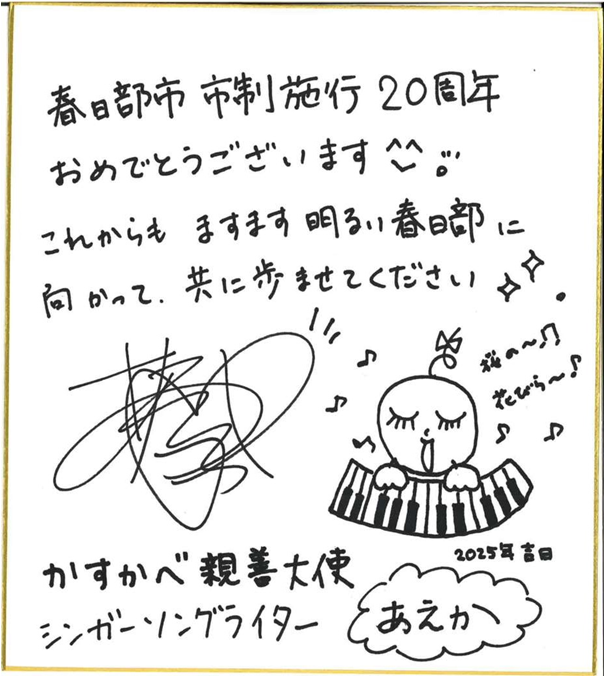 春日部市 市制施行 20周年
おめでとうございます^^
これからも ますます 明るい春日部に
向かって、共に歩ませてください
桜の〜♫
花びら〜♪
2025年吉日
かすかべ親善大使
シンガーソングライター
あえか